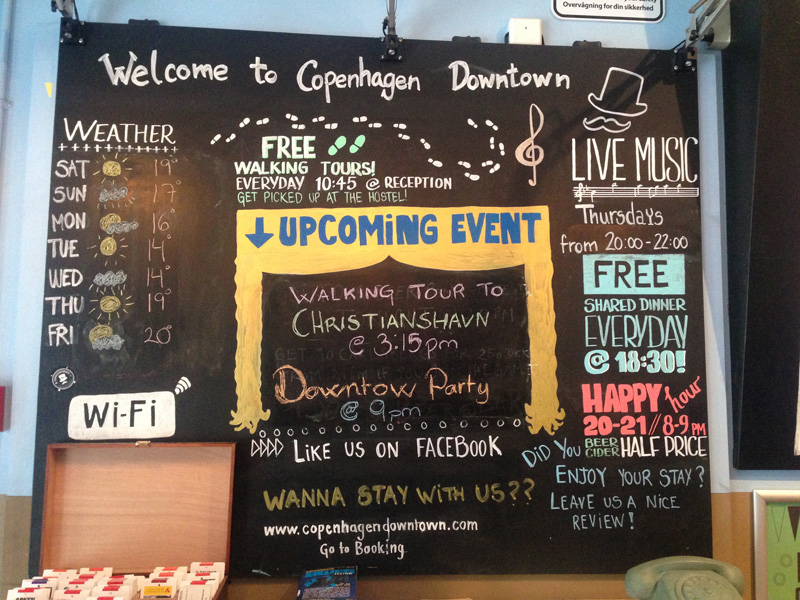 Overvågning for din sikkerhed
Welcome to Copenhagen Downtown
WEATHER
SAT 19°
SUN 17°
MON 16°
TUE 14°
WED 14°
THU 19°
FRI 20°
Wi-Fi
FREE
WALKING TOURS!
EVERYDAY 10:45 @ RECEPTION
GET PICKED UP AT THE HOSTEL!
UPCOMING EVENT
WALKING TOUR TO
CHRISTIANSHAVN
@ 3:15pm
Downtow Party
@ 9pm
LIKE US ON FACEBOOK
WANNA STAY WITH US??
www.copenhagendowntown.com
Go to Booking
LIVE MUSIC
Thursdays
from 20:00-22:00
FREE
SHARED DINNER
EVERYDAY
@ 18:30!
HAPPY hour
20-21//8-9 PM
BEER CIDER HALF PRICE
DID YOU
ENJOY YOUR STAY?
LEAVE US A NICE
REVIEW!